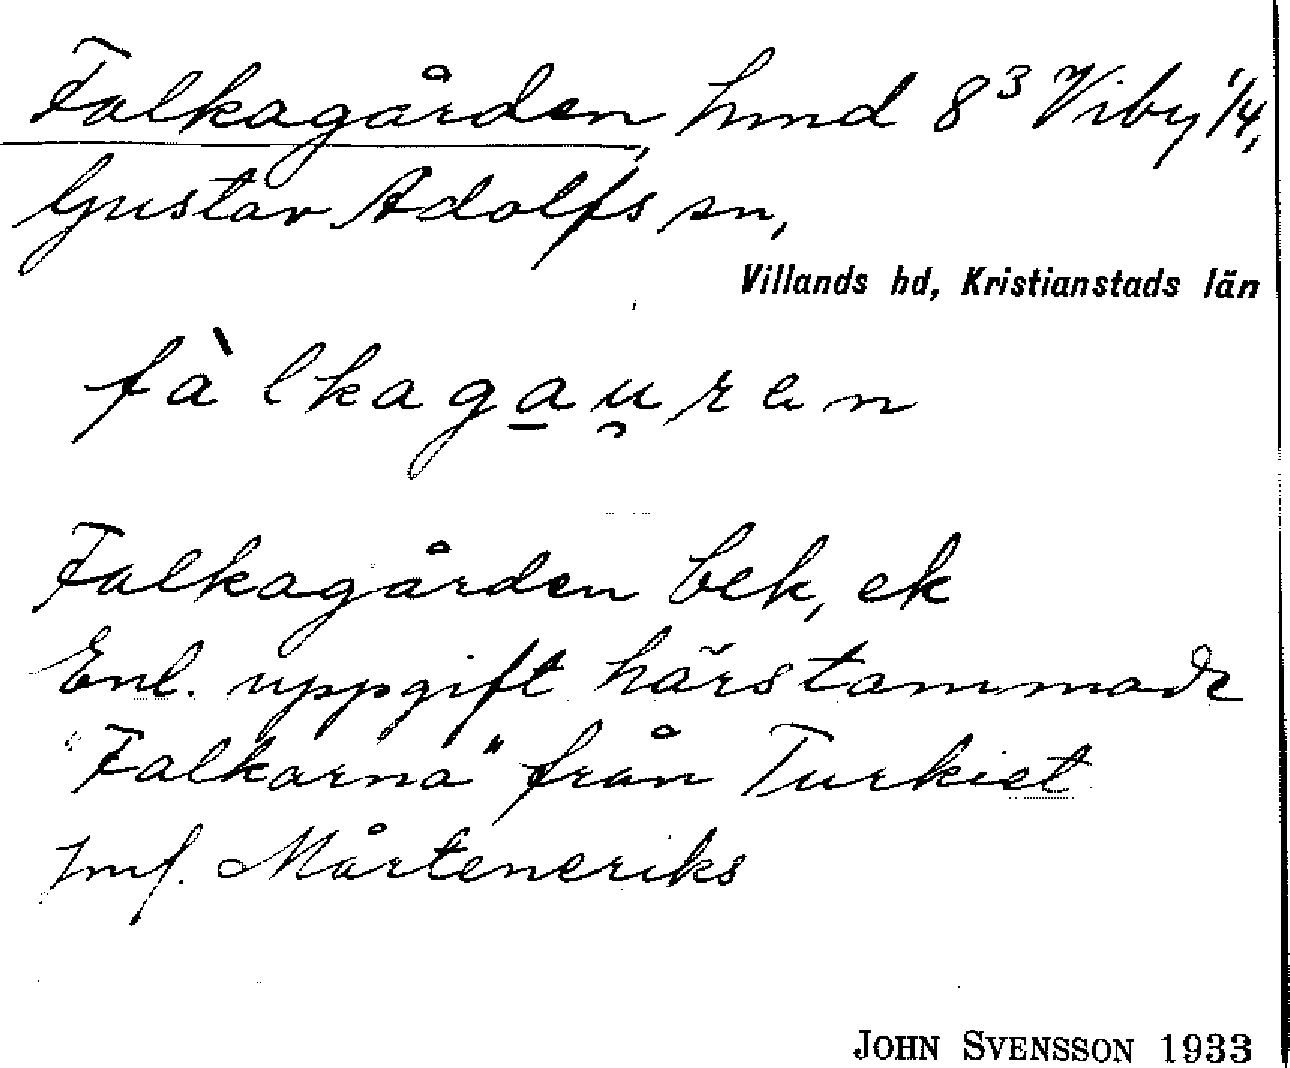 Falkagården, hmd 8³ Viby 1/4,
Gustav Adolfs sn,
Villands hd, Kristianstads län
fàlkaga̱u̯ren
Falkagården bek, ek
Enl. uppgift härstammade
"Falkarna" från Turkiet
jmf. Mårteneriks
JOHN SVENSSON 1933